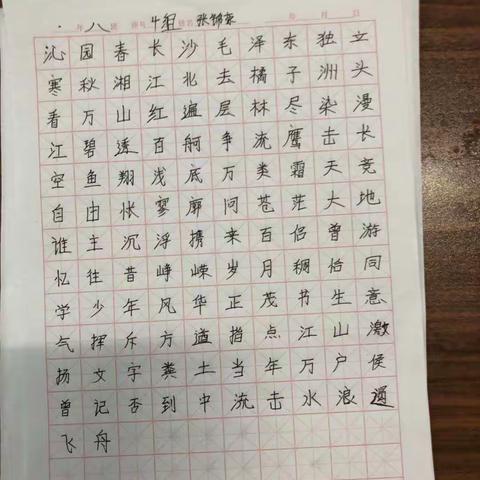 八 班 4组 张
沁园春长沙毛泽东独立
寒秋湘江北去橘子洲头
看万山红遍层林尽染漫
江碧透百舸争流鹰击长
空鱼翔浅底万类霜天竞
自由怅寥廓问苍茫大地
谁主沉浮携来百侣曾游
忆往昔峥嵘岁月稠恰同
学少年风华正茂书生意
气挥斥方遒指点江山激
扬文字粪土当年万户侯
曾记否到中流击水浪遏
飞舟